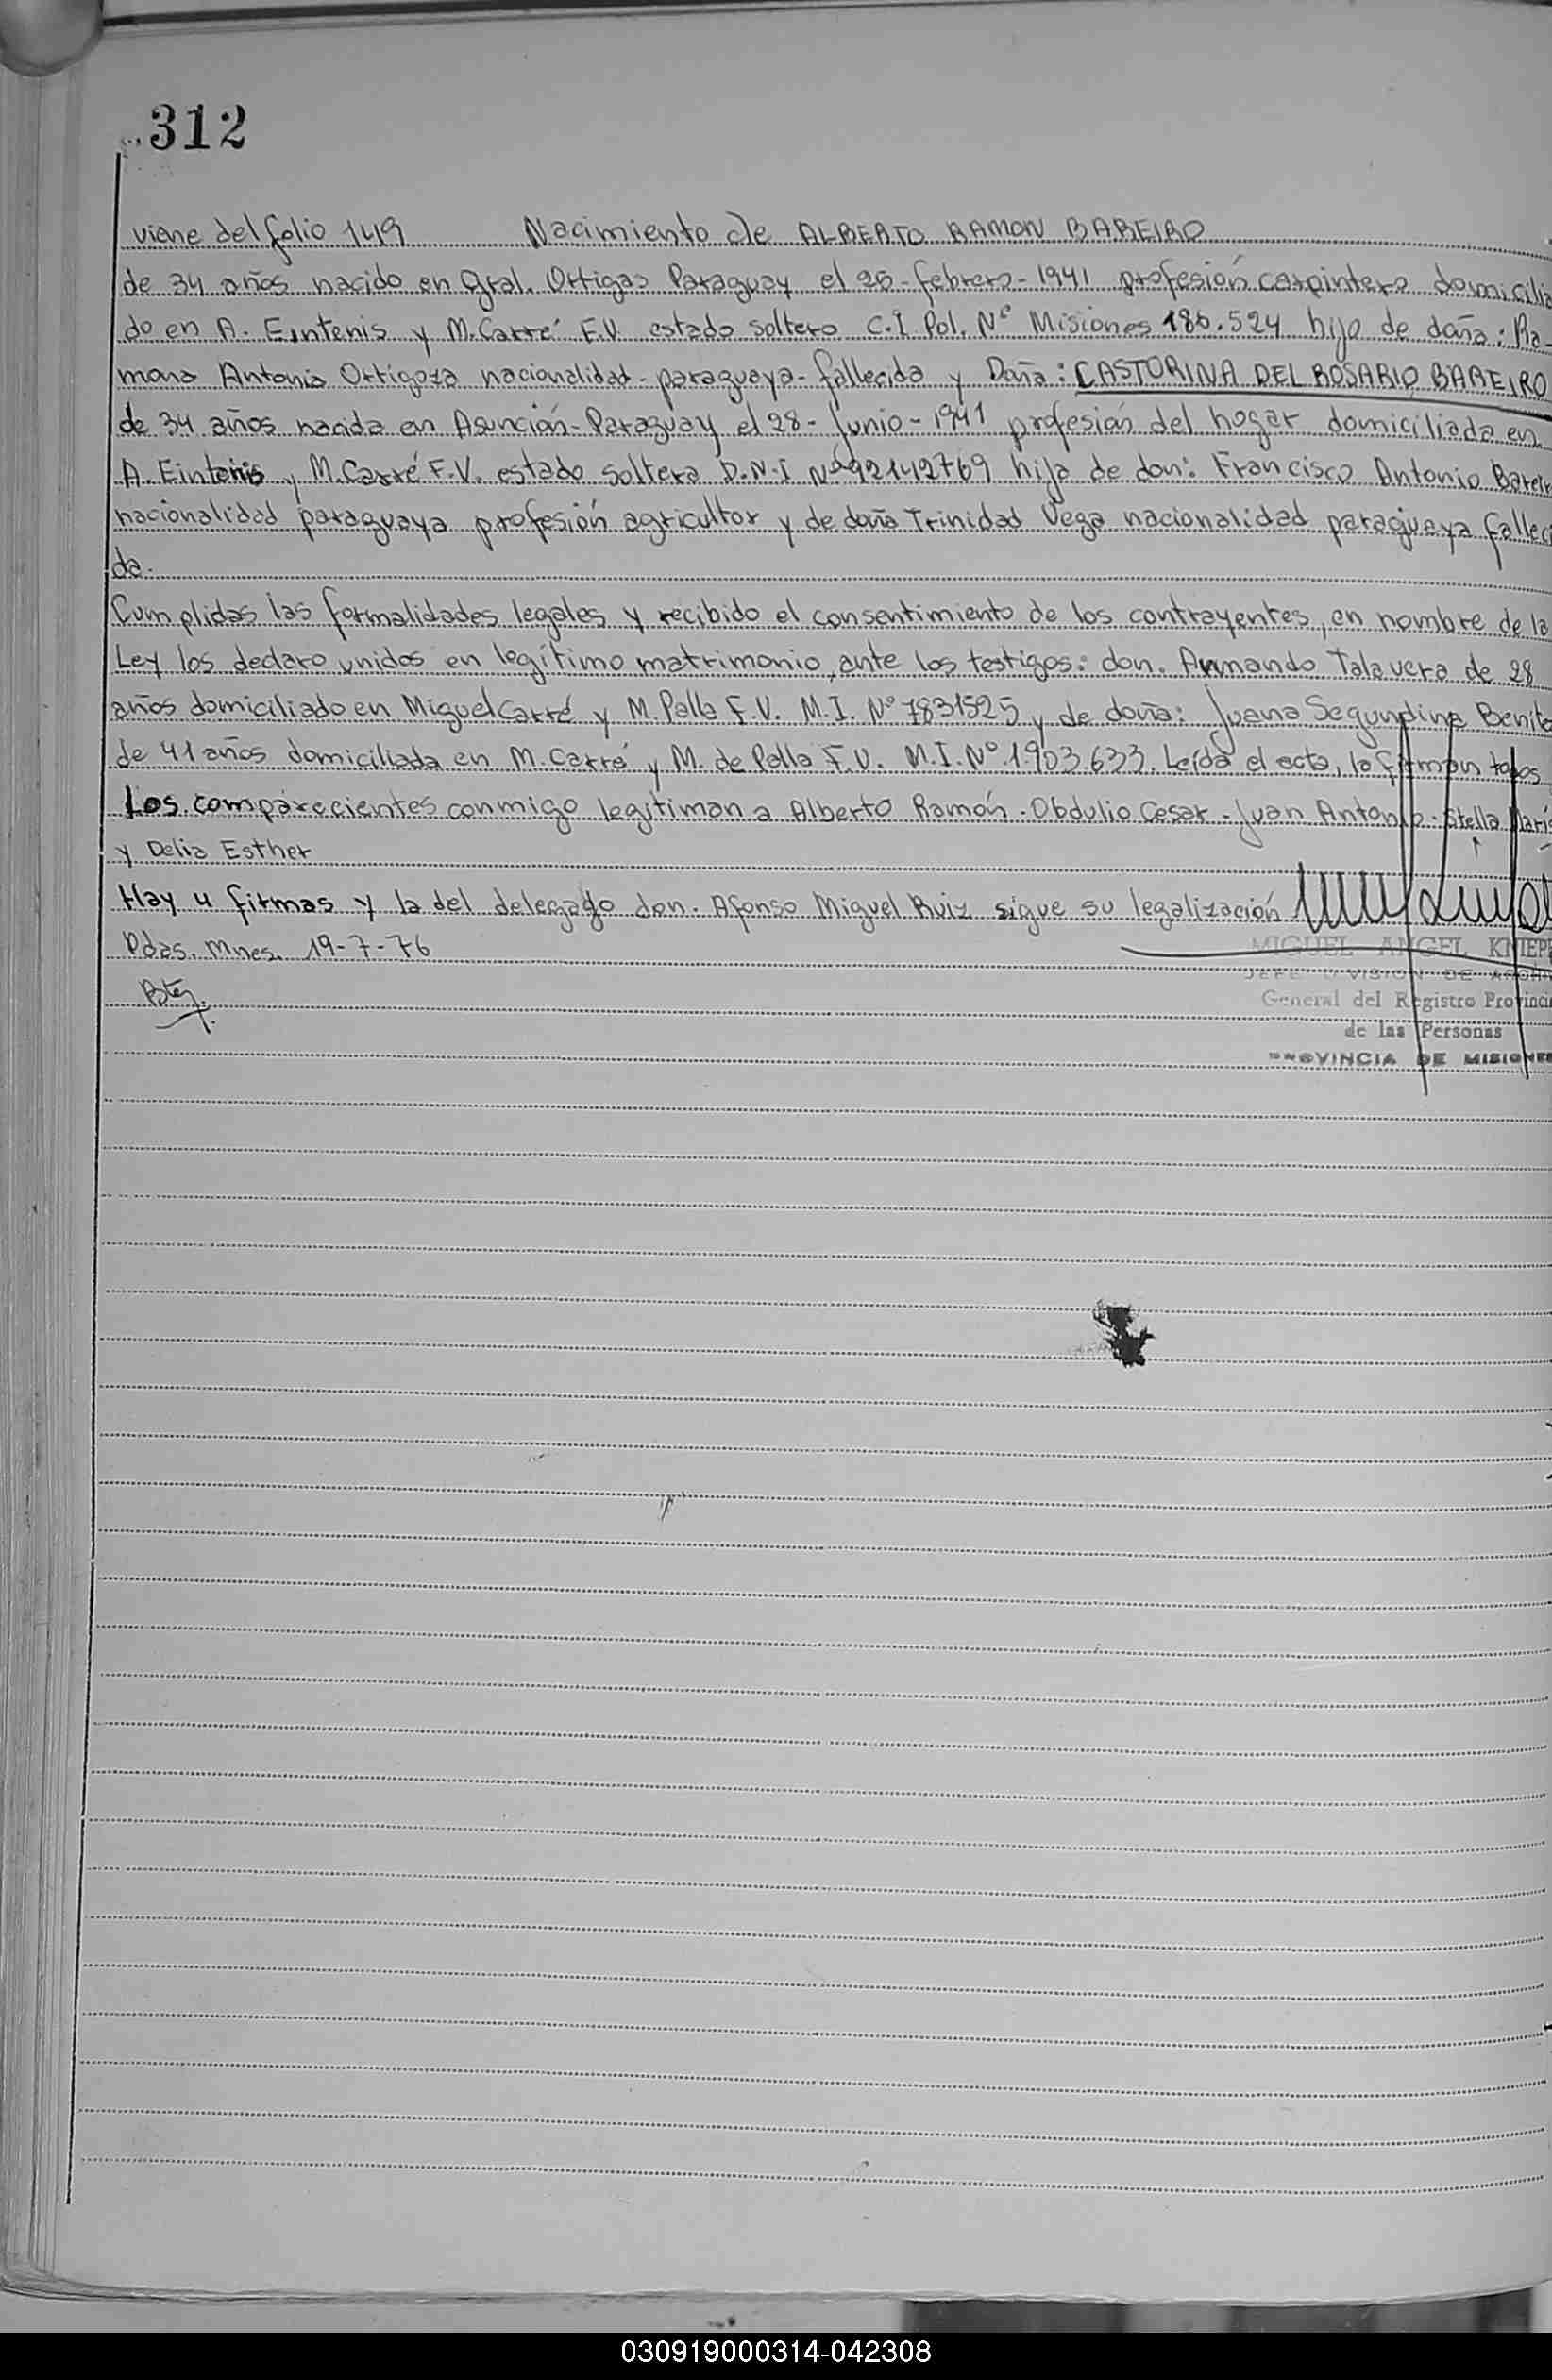 312
viene del folio 149 Nacimiento de ALBERTO RAMON BAREIRO
de 34 años nacido en Gral. Ortigas Paraguay el 26-febrero-1941 profesión carpintero domicilia
do en A. Eintenis y M. Carré F.V. estado soltero C.I Pol. Nº Misiones 186.524 hijo de doña: Ra-
mona Antonia Ortigoza nacionalidad-paraguaya-fallecida y Doña: CASTORINA DEL ROSARIO BAREIRO
de 34 años nacida en Asunción-Paraguay el 28-Junio-1941 profesión del hogar domiciliada en
A. Eintenis y M. Carré F.V. estado soltera D.N.I Nº 92142769 hija de don: Francisco Antonio Barei
nacionalidad paraguaya profesión agricultor y de doña Trinidad Vega nacionalidad paraguaya falleci
da.
Cumplidas las formalidades legales y recibido el consentimiento de los contrayentes, en nombre de la
Ley los declaro unidos en legítimo matrimonio, ante los testigos: don. Armando Talavera de 28
años domiciliado en Miguel Carré y M. Palla F.V. M.I. Nº 7831525 y de doña: Juana Segundina Benite
de 41 años domiciliada en M. Carré y M. de Palla F.V. M.I. Nº 1.903.633. Leída el acta, la firman todos
Los comparecientes conmigo legitiman a Alberto Ramón - Obdulio Cesar - Juan Antonio - Stella Maris
y Delia Esther
Hay 4 firmas y la del delegado don. Afonso Miguel Ruiz sigue su legalización
Pdas. Mnes. 19-7-76
MIGUEL ANGEL KNIEP
JEFE DIVISION DE ARCHI
General del Registro Provinci
de las Personas
PROVINCIA DE MISIONES
030919000314-042308